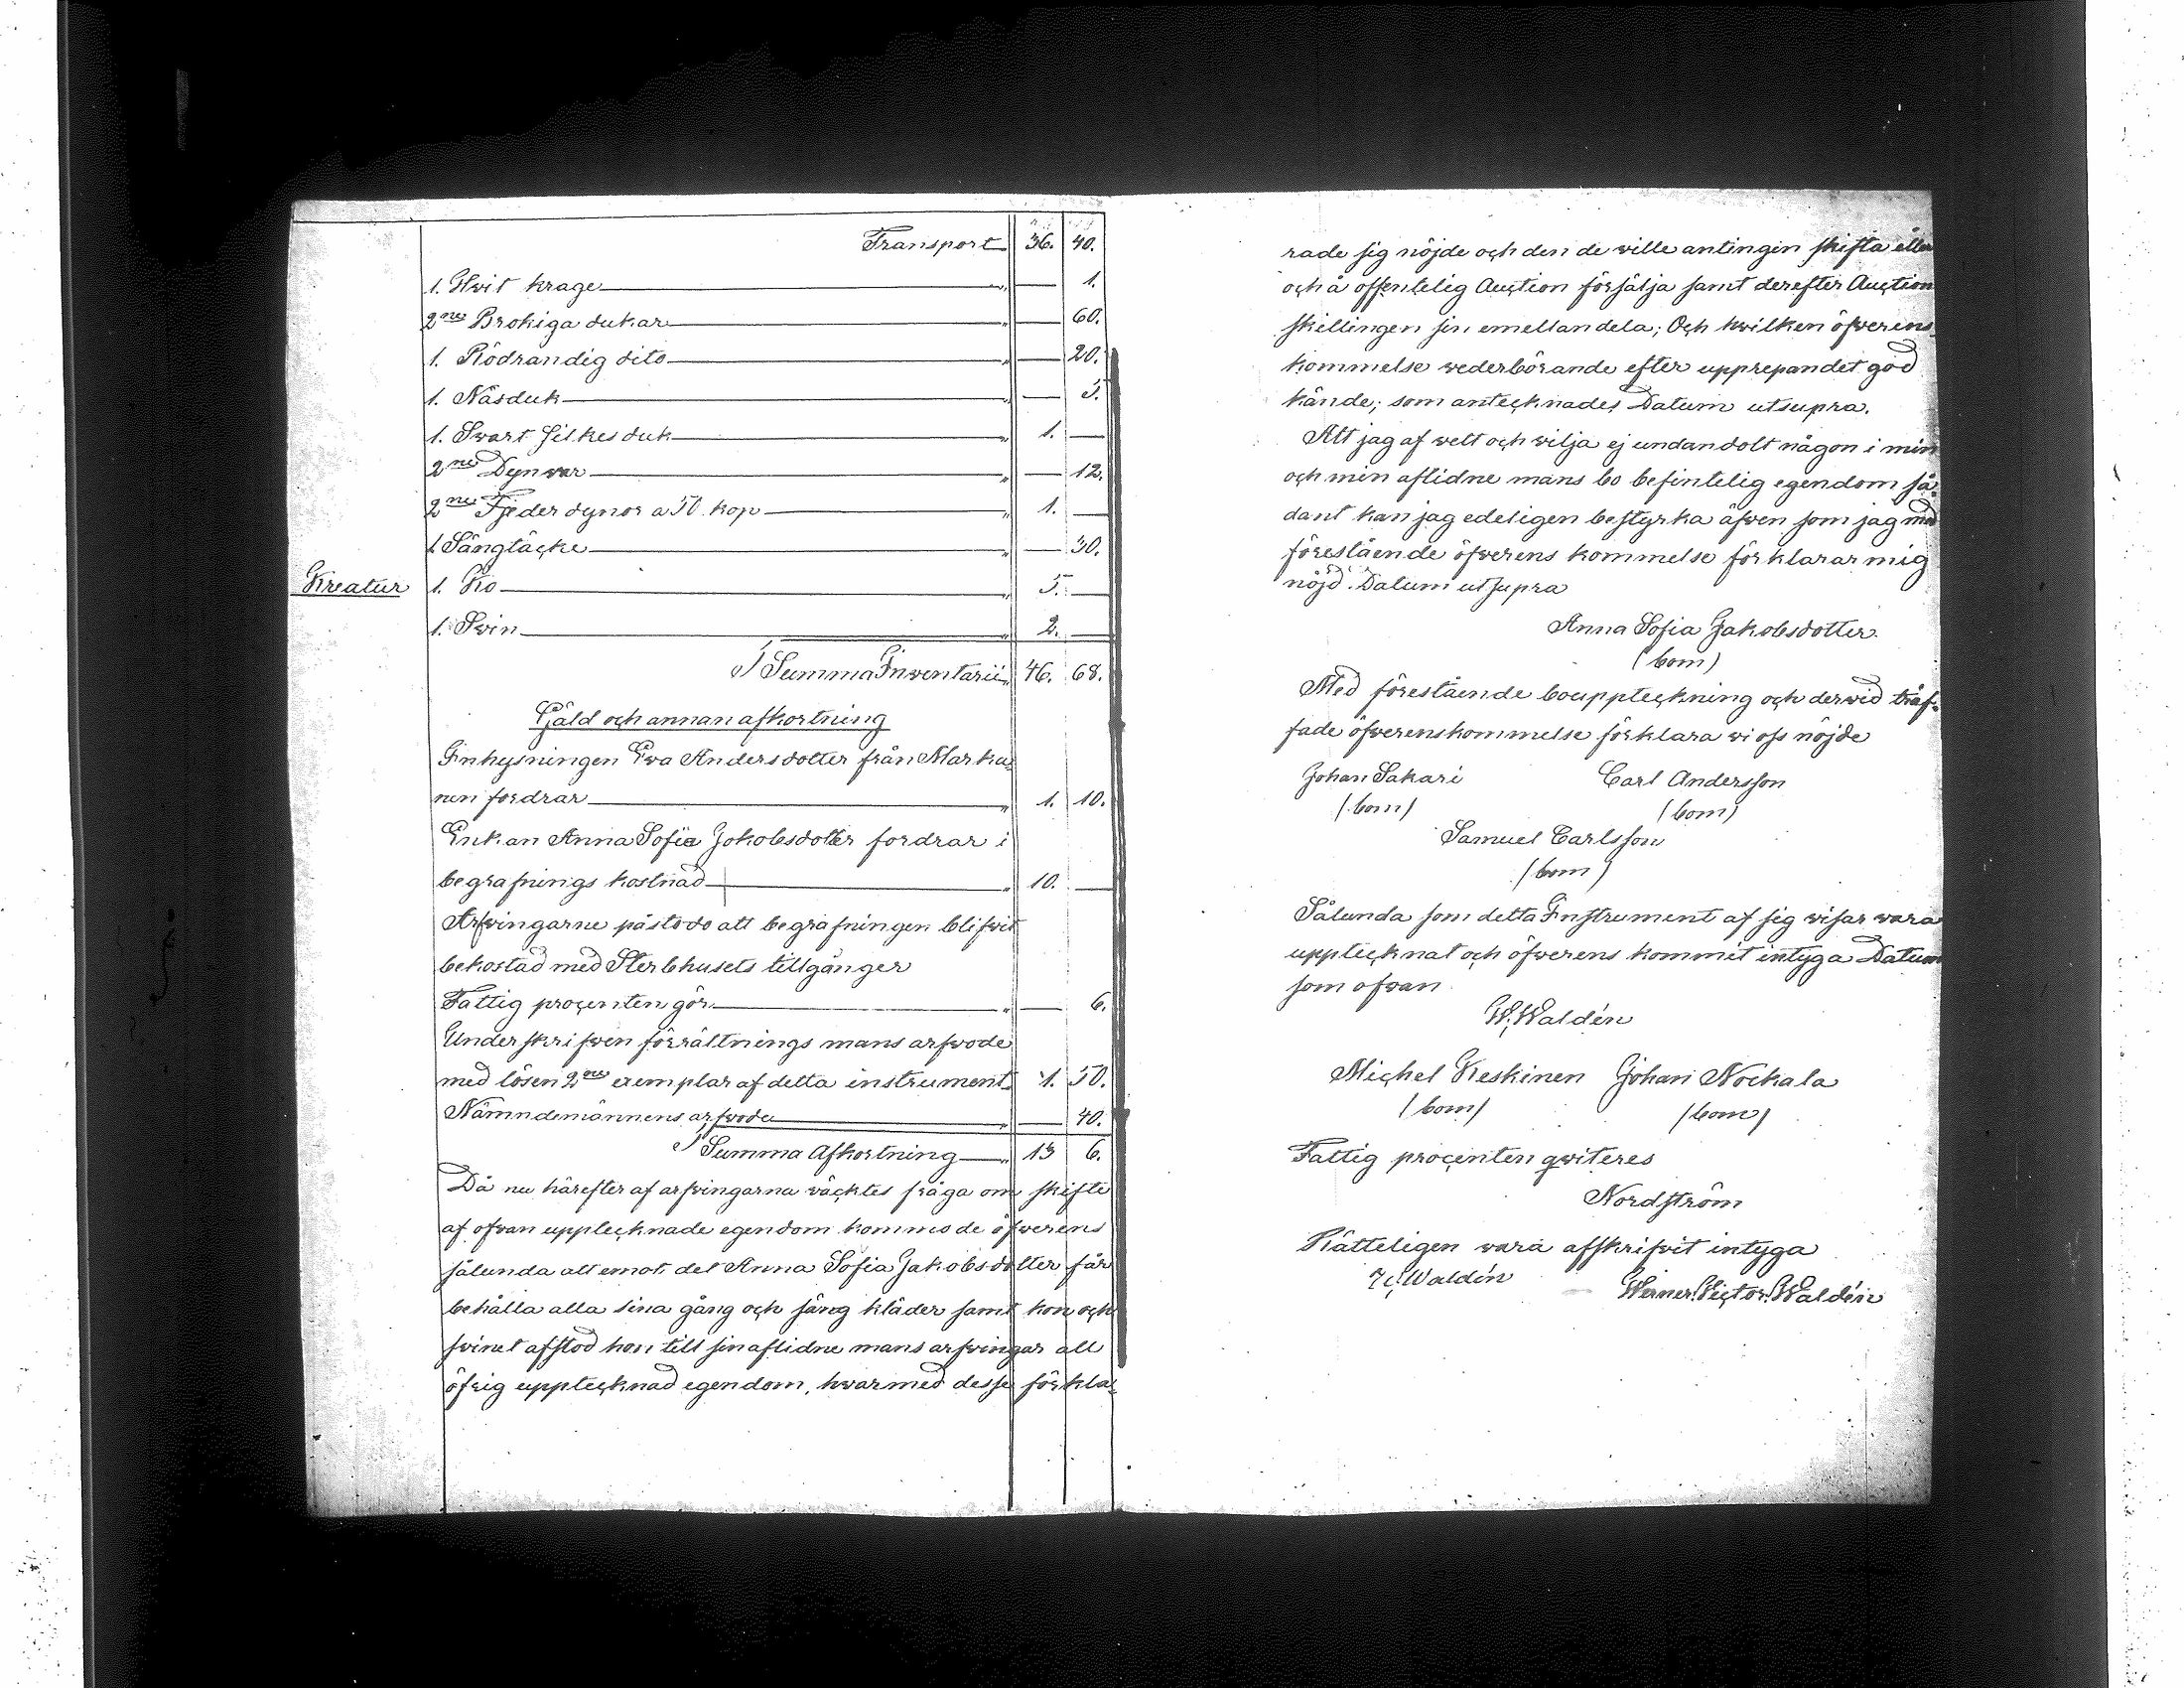 Transport 36. 40.
1. Hvit krage " — 1.
2ne Brokiga dukar " — 60.
1. Rödrandig dito " — 20.
1. Näsduk " — 5.
1. Svart silkes duk " 1. —
2ne Dynvar " — 12.
2ne Fjeder dynor a 50. kop " 1. —
1 Sängtäcke " — 30.
Kreatur 1. Ko " 5. —
1. Svin " 2. —
Summa Inventarii " 46. 68.
Gäld och annan afkortning
Inhysningen Eva Andersdotter från Marku-
nen fordrar " 1. 10.
Enkan Anna Sofia Jokobsdotter fordrar i
begrafnings kostnad " 10. —
Arfvingarne påstodo att begrafningen blifvit
bekostad med Sterbhusets tillgånger
Fattig procenten gör " — 6.
Underskrifven förrättnings mans arfvode
med lösen 2ne exemplar af detta instrument 1. 50.
Nämndemännens arfvode " — 40.
Summa Afkortning " 13 6.
Då nu härefter af arfvingarna väcktes fråga om skifte
af ofvan upptecknade egendom kommo de öfverens
sålunda att emot det Anna Sofia Jakobsdotter får
behålla alla sina gång och säng kläder samt kon och
svinet afstod hon till sin aflidne mans arfvingar all
öfrig upptecknad egendom, hvarmed desse förkla-
rade sig nöjde och den de wille antingen skifta eller
och å offentelig Auction försälja samt derefter Auction
skillingen sin emellan dela; Och hwilken öfverens-
kommelse wederbörande efter upprepandet god
kände; som antecknades Datum utsupra.
Att jag af wett och wilja ej undandolt någon i min
och min aflidne mans bo befintelig egendom så-
dant kan jag edeligen bestyrka äfven som jag med
förestående öfverens kommelse förklarar mig
nöjd. Datum utsupra
Anna Sofia Jakobsdotter.
(bom)
Med förestående bouppteckning och derwid träf-
fade öfverenskommelse förklara wi oss nöjde
Johan Sakari Carl Andersson
(bom) (bom)
Samuel Carlsson
(bom)
Sålunda som detta Instrument af sig wisar wara
upptecknat och öfverens kommit intyga Datum
som ofvan
W. Waldén
Michel Keskinen Johan Nockala
(bom) (bom)
Fattig procenten qwiteres
Nordström
Rätteligen wara afskrifvit intyga
Waldén Werner Victor Waldén